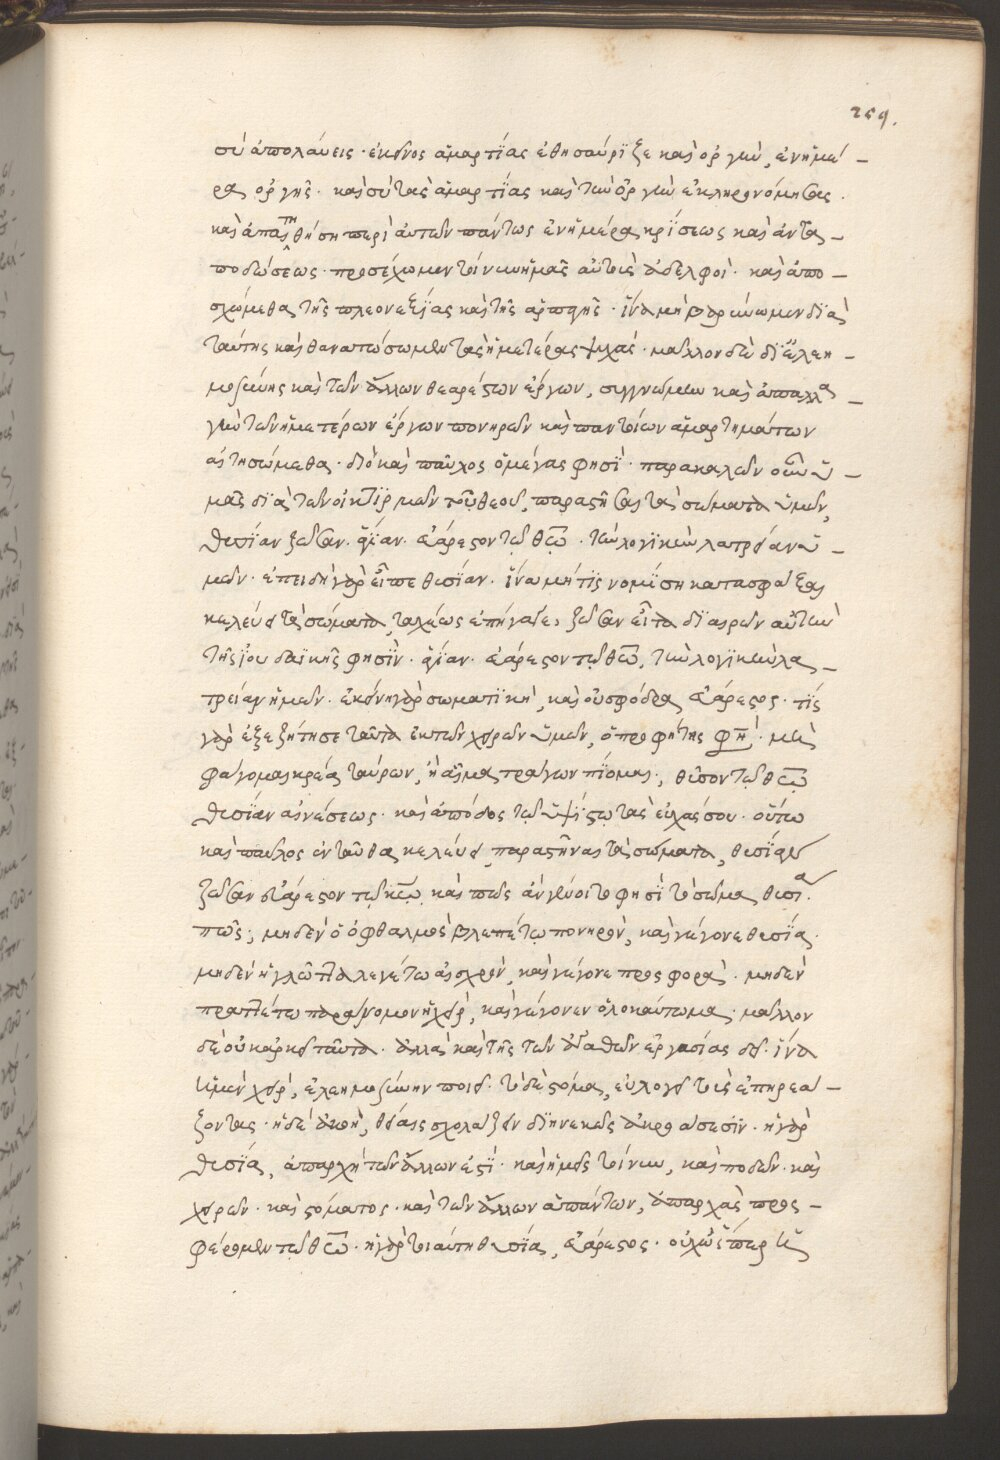 259.
σὺ ἀπολάυεις · ἐκεῖνος ἁμαρτίας ἐθησαύριζε καὶ ὀργὴν, ἐν ἡμέ –
ρα ὀργῆς · καὶ σὺ τὰς ἁμαρτίας καὶ τὴν ὀργὴν ἐκληρονόμησας ·
καὶ ἀπαιτηθήση περὶ ἀυτῶν πάντως ἐν ἡμέρα κρίσεως καὶ ἀντα –
ποδώσεως · προσέχωμεν τοίνυν ἡμᾶς αὐτοὺς ἀδελφοὶ · καὶ ἀπο –
σχώμεθα τῆς πλεονεξίας καὶ τῆς ἁρπαγῆς · ἵνα μὴ βαρύνωμεν διὰ
ταύτης καὶ θανατώσωμεν τὰς ἡμετέρας ψυχάς · μᾶλλον δὲ δι ἐλεη –
μοσύνης καὶ τῶν ἄλλων θεαρέστων ἔργων, συγγνώμην καὶ ἀπαλλα –
γὴν τῶν ἡμετέρων ἔργων πονηρῶν καὶ παντοίων ἁμαρτημάτων
αἰτησώμεθα · διὸ καὶ παῦλος ὁ μέγας φησὶ · παρακαλῶν οὖν ὑ –
μᾶς διὰ τῶν οἰκτιρμῶν τοῦ θεοῦ, παραστῆσαι τὰ σώματα ὑμῶν,
θυσίαν ζῶσαν · ἁγίαν · εὐάρεστον τῶ θεῶ · τὴν λογικὴν λατρείαν ὑ –
μῶν · ἐπειδὴ γὰρ εἶπε θυσίαν · ἵνα μήτις νομίση κατασφάξαι
κελεύει τὰ σώματα, ταχέως ἐπήγαγε, ζῶσαν εἶτα διαιρῶν αὐτὴν
τῆς ἰουδαϊκῆς φησὶν · ἁγίαν · εὐάρεστον τῶ θεῶ, τὴν λογικὴν λα –
τρείαν ἡμῶν · ἐκείνη γὰρ σωματικὴ, καὶ οὐ σφόδρα εὐάρεστος · τίς
γὰρ ἐξεζήτησε ταῦτα ἐκ τῶν χειρῶν ὑμῶν, ὁ προφήτης φησὶ · μὴ
φάγομαι κρέα ταύρων, ἢ αἷμα τράγων πίομαι ·, θῦσον τῶ θεῶ
θυσίαν αἰνέσεως · καὶ ἀπόδος τῶ ὑψίστω τὰς εὐχάς σου · οὕτω
καὶ παῦλος ἐνταῦθα κελεύει παραστῆναι τὰ σώματα, θυσίαν
ζῶσαν εὐάρεστον τῶ κῶ, καὶ πῶς ἂν γένοιτο φησὶ τὸ σῶμα θυσία ·
πῶς ·, μηδὲν ὁ ὀφθαλμὸς βλεπέτω πονηρὸν, καὶ γέγονε θυσία ·
μηδὲν ἡ γλῶττα λεγέτω αἰσχρὸν, καὶ γέγονε προσφορὰ · μηδὲν
πραττέτω παράνομον ἡ χεὶρ, καὶ γέγονεν ὁλοκαύτωμα · μᾶλλον
δὲ οὐκ ἀρκεῖ ταῦτα · ἀλλὰ καὶ τῆς τῶν ἀγαθῶν ἐργασίας δεῖ · ἵνα
ἡ μὲν χεὶρ, ἐλεημοσύνην ποιεῖ · τὸ δὲ στόμα, εὐλογεῖ τοὺς ἐπηρεά –
ζοντας · ἡ δὲ ἀκοὴ, θείαις σχολάζειν διηνεκῶς ἀκροάσεσιν · ἡ γὰρ
θυσία, ἀπαρχὴ τῶν ἄλλων ἐστὶ · καὶ ἡμεῖς τοίνυν, καὶ ποδῶν · καὶ
χειρῶν · καὶ στόματος · καὶ τῶν ἄλλων ἁπάντων, ἀπαρχὰς προσ –
φέρομεν τῶ θεῶ · ἡ γὰρ τοιαύτη θυσία, εὐάρεστος · οὐχ ὥσπερ ἡ